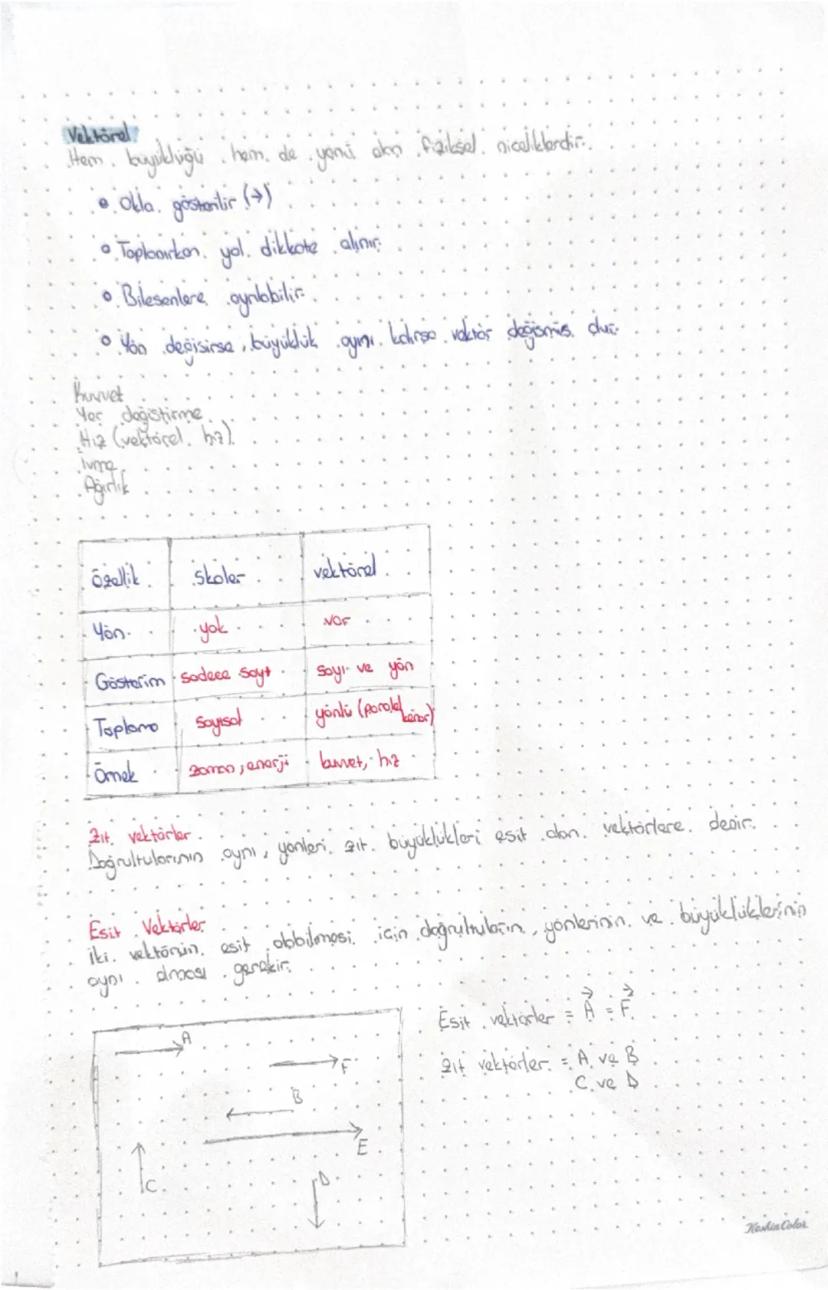 Vektörel
Hem büyüklüğü hem de yönü olan fiziksel niceliklerdir.
• Okla gösterilir (→)
• Toplanırken yol dikkate alınır.
• Bileşenlere ayrılabilir.
• Yön değişirse, büyüklük aynı kalırsa vektör değişmiş olur.
Kuvvet
Yer değiştirme
Hız (vektörel hız)
İvme
Ağırlık
Özellik skaler vektörel
Yön yok var
Gösterim sadece sayı sayı ve yön
Toplama sayısal yönlü (paralel kenar)
Örnek zaman, enerji kuvvet, hız
Zıt vektörler
Doğrultularının aynı, yönleri zıt büyüklükleri eşit olan vektörlere denir.
Eşit Vektörler
İki vektörün eşit olabilmesi için doğrultuların, yönlerinin ve büyüklüklerinin
aynı olması gerekir.
Eşit vektörler = A⃗ = F⃗
Zıt vektörler = A ve B
C ve D
A
F
B
E
C
D
KeskinColor